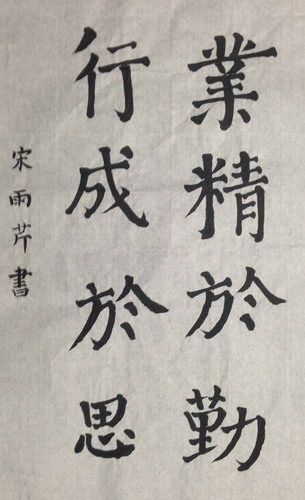 業精於勤
行成於思
宋雨芹書